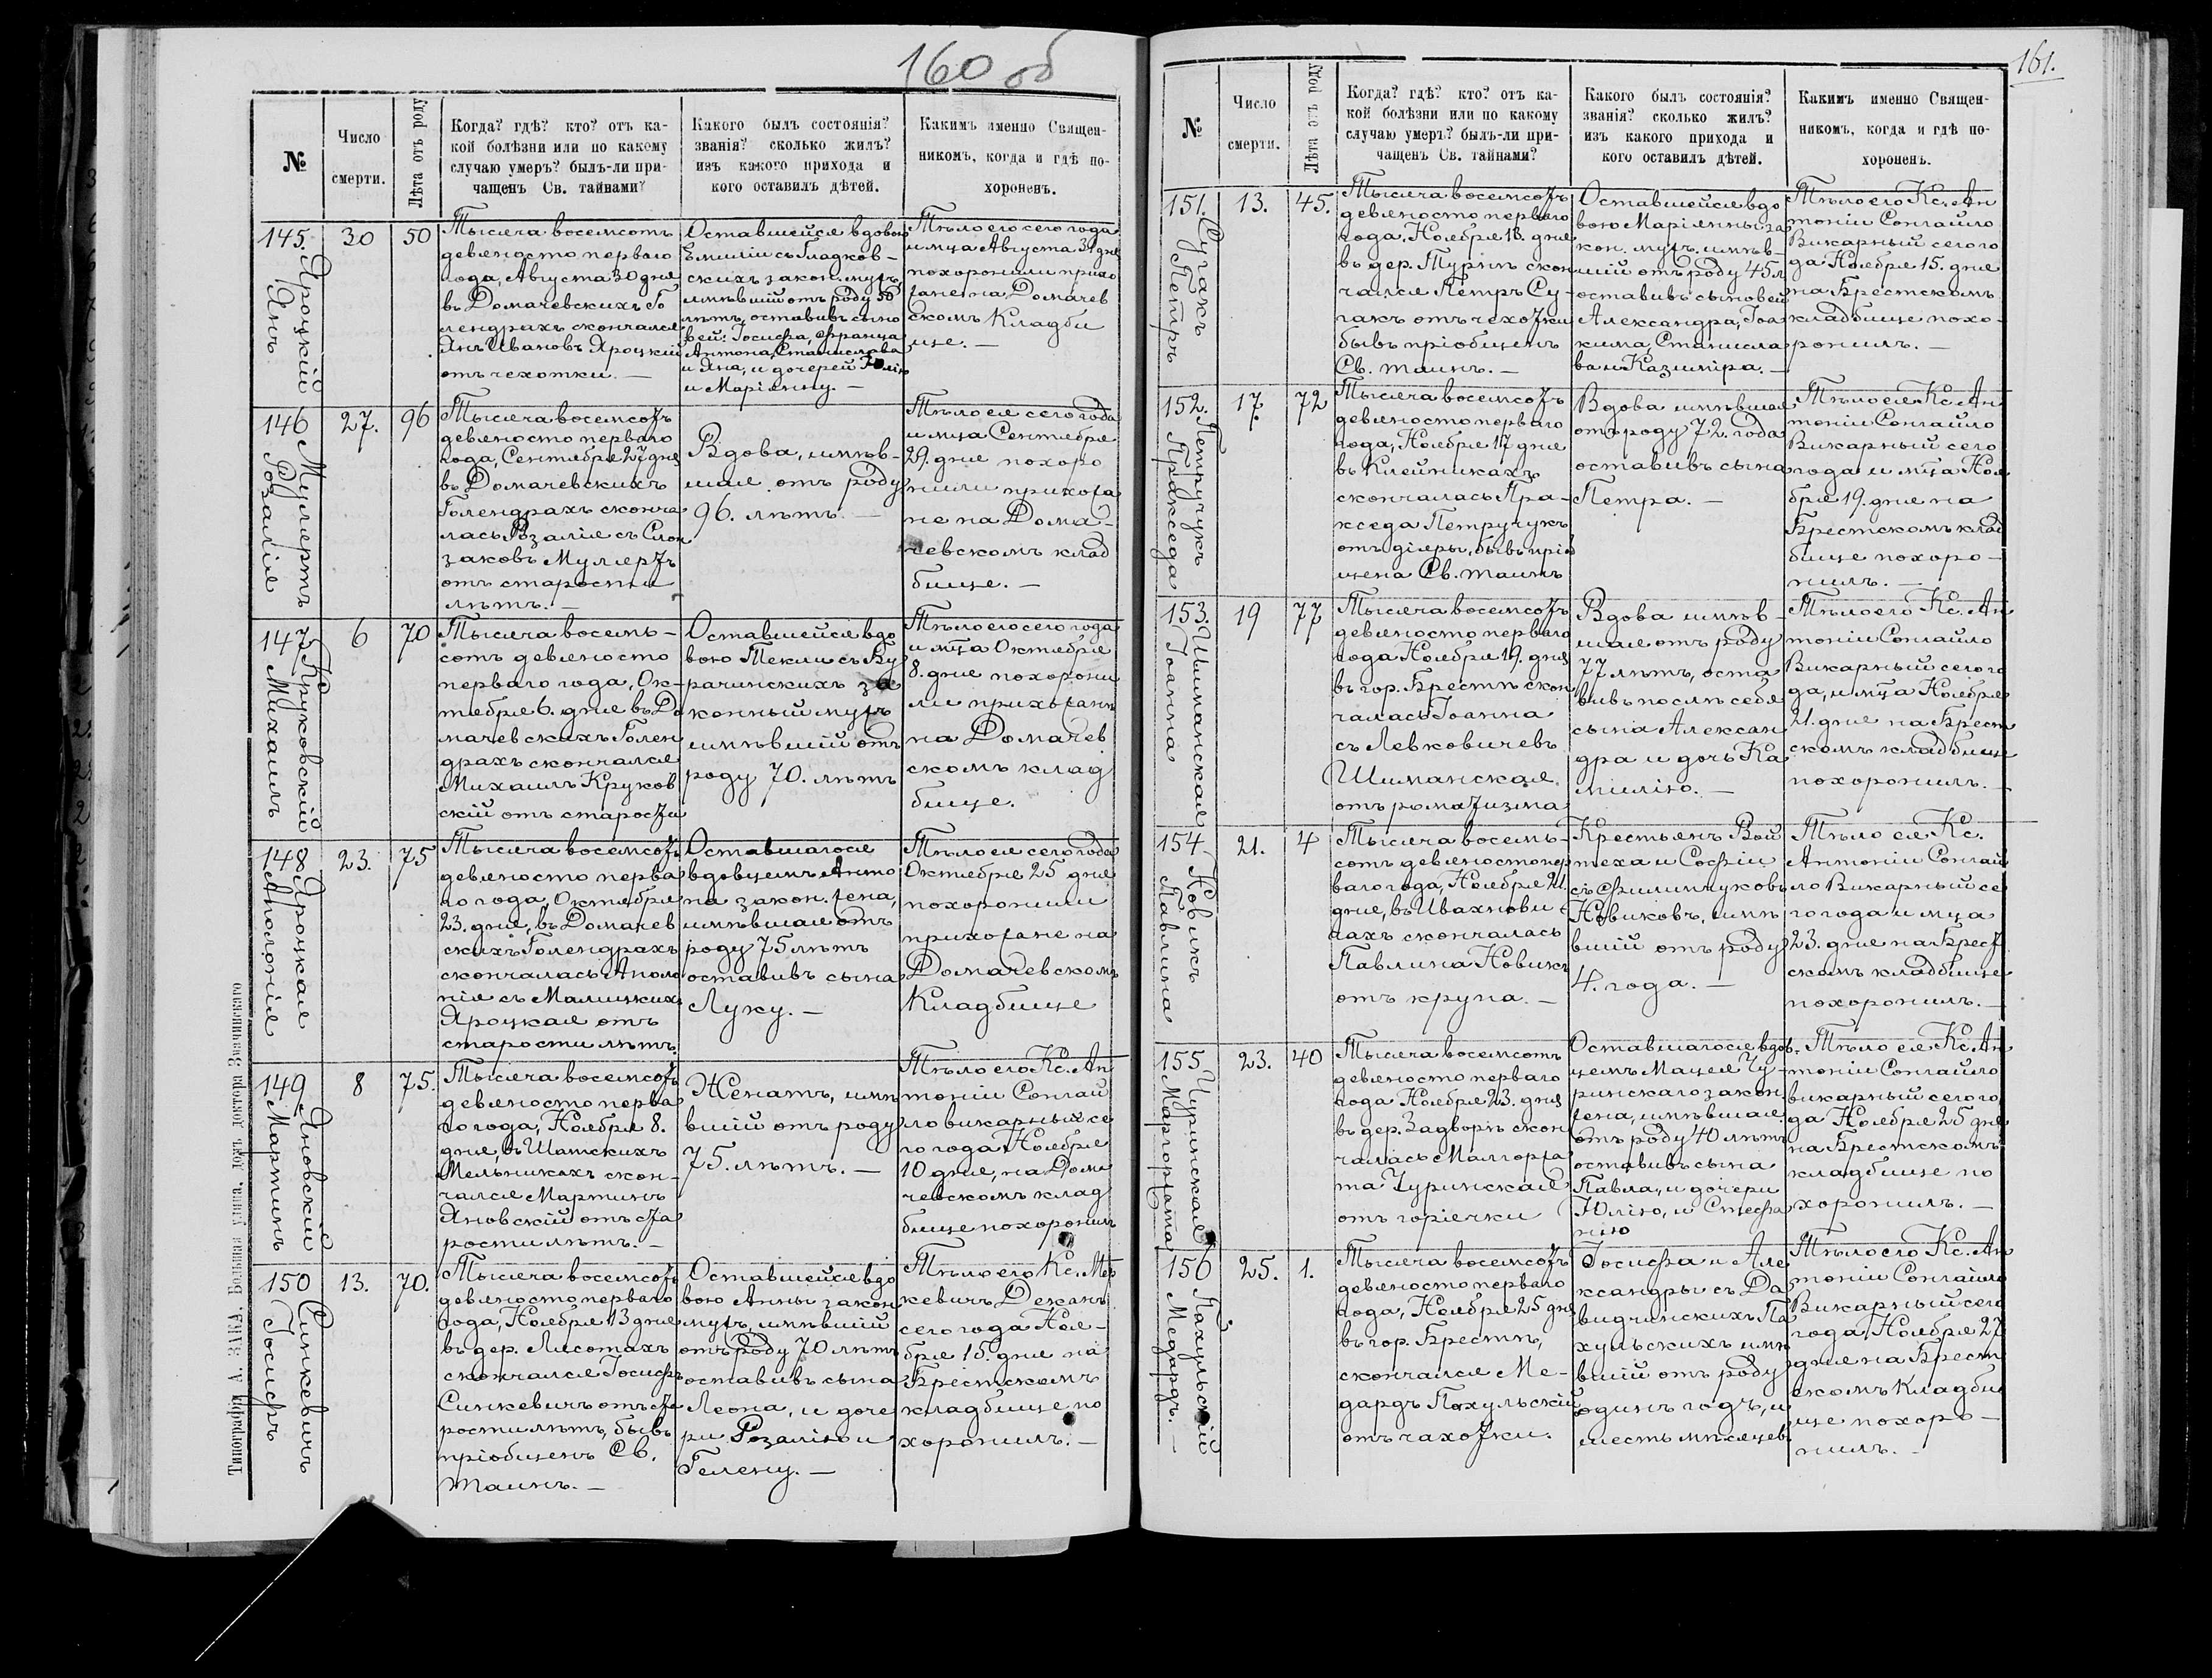 160 об
№
Число
смерти.
Лѣта отъ роду
Когда? гдѣ? кто? отъ ка-
кой болѣзни или по какому
случаю умеръ? былъ-ли при-
чащенъ Св. тайнами?
Какого былъ состоянія?
званія? сколько жилъ?
изъ какого прихода и
кого оставилъ дѣтей.
Какимъ именно Священ-
никомъ, когда и гдѣ по-
хороненъ.
145.
Яроцкій
Янъ
30
50
Тысяча восемсотъ
девяносто перваго
года, Августа 30 дня
въ Домачевскихъ Го
лендрахъ скончался
Янъ Ивановъ Яроцкій
отъ чехотки. —
Оставшейся вдовою
Емиліи съ Гладков-
скихъ закон. мужъ,
имѣвшій отъ роду 50
лѣтъ, оставивъ сыно
вей: Іосифа, Франца
Антона, Станислава
и Яна, и дочерей Юлію
и Маріянну. —
Тѣло его сего года
и мца Августа 31 дня
похоронили прихо
жане на Домачев
скомъ Кладби
ще. —
146
Муллертъ
Розалія
27.
96
Тысяча восемсотъ
девяносто перваго
года, Сентября 27 дня
въ Домачевскихъ
Голендрахъ сконча
лась Розалія съ Слон
заковъ Муллертъ
отъ старости
лѣтъ. —
Вдова, имѣв-
шая отъ роду
96. лѣтъ. —
Тѣло ея сего года
и мца Сентября
29. дня похоро
нили прихожа
не на Дома-
чевскомъ клад
бище. —
147
Круковскій
Михаилъ
6
70
Тысяча восемь-
сотъ девяносто
перваго года, Ок-
тября 6. дня въ До
мачевскихъ Голен
драхъ скончался
Михаилъ Круков
скій отъ старости
Оставшейся вдо
вою Текли съ Бу
рачинскихъ за
конный мужъ
имѣвшій отъ
роду 70. лѣтъ
Тѣло его сего года
и мца Октября
8. дня похорони
ли прихожанѣ
на Домачев
скомъ клад
бище.
148
Яроцкая
Аполонія
23.
75
Тысяча восемсотъ
девяносто перва
го года, Октября
23. дня, въ Домачев
скихъ Голендрахъ
скончалась Аполо
нія съ Малицкихъ
Яроцкая отъ
старости лѣтъ.
Оставшагося
вдовцемъ Анто
на закон. жена,
имѣвшая отъ
роду 75 лѣтъ
оставивъ сына
Луку. —
Тѣло ея сего года
Октября 25 дня
похоронили
прихожане на
Домачевскомъ
Кладбище
149
Яновскій
Мартинъ
8
75.
Тысяча восемсотъ
девяносто перва
го года, Ноября 8.
дня, въ Шатскихъ
Мельникахъ скон-
чался Мартинъ
Яновскій отъ ста
рости лѣтъ. —
Женатъ, имѣ
вшій отъ роду
75. лѣтъ. —
Тѣло его Кс. Ан
тоній Сонгай
ло викарный се
го года Ноября
10 дня, на Дома
чевскомъ клад
бище похоронилъ
150
Синкевичъ
Іосифъ
13.
70.
Тысяча восемсотъ
девяносто перваго
года, Ноября 13 дня
въ дер. Лисотахъ
скончался Іосифъ
Синкевичъ отъ ста
рости лѣтъ, бывъ
пріобщенъ Св.
Таинъ. —
Оставшейся вдо
вою Анны закон
мужъ, имѣвшій
отъ роду 70 лѣтъ
оставивъ сына
Леона, и доче
ри Розалію и
Гелену. —
Тѣло его Кс. Мер
кевичъ Деканъ
сего года Ноя-
бря 15. дня на
Брестскомъ
кладбище по
хоронилъ. —
Типографія А. ЗАКА. Большая улица, домъ доктора Значинскаго
161.
№
Число
смерти.
Лѣта отъ роду
Когда? гдѣ? кто? отъ ка-
кой болѣзни или по какому
случаю умеръ? былъ-ли при-
чащенъ Св. тайнами?
Какого былъ состоянія?
званія? сколько жилъ?
изъ какого прихода и
кого оставилъ дѣтей.
Какимъ именно Священ-
никомъ, когда и гдѣ по-
хороненъ.
151.
Сугакъ
Петръ
13.
45.
Тысяча восемсотъ
девяносто перваго
года, Ноября 13. дня
въ дер. Турнѣ скон
чался Петръ Су-
гакъ отъ чехотки
бывъ пріобщенъ
Св. таинъ. —
Оставшейся вдо
вою Маріянны за
кон. мужъ, имѣв-
шій отъ роду 45 л
оставивъ сыновей
Александра, Іоа
кима, Станисла
ва и Казиміра. —
Тѣло его Кс. Ан
тоній Сонгайло
Викарный сего го
да Ноября 15. дня
на Брестскомъ
кладбище похо-
ронилъ. —
152.
Петручукъ
Праkседа
17.
72
Тысяча восемсотъ
девяносто перваго
года, Ноября 17 дня
въ Клейникахъ
скончалась Пра-
кседа Петручукъ
отъ діяреи, бывъ пріоб
щена Св. таинъ
Вдова имѣвшая
отъ роду 72. года
оставивъ сына
Петра. —
Тѣло ея Кс. Ан
тоній Сонгайло
Викарный сего
года и мца Ноя
бря 19. дня на
Брестскомъ клад
бище похоро-
нилъ. —
153.
Шиманская
Іоанна
19
77
Тысяча восемсотъ
девяносто перваго
года Ноября 19. дня
въ гор. Брестѣ скон
чалась Іоанна
съ Левковичевъ
Шиманская
отъ роматизма
Вдова имѣв-
шая отъ роду
77 лѣтъ, оста
вивъ послѣ себя
сына Алексан
дра и дочь Ка
милію. —
Тѣло его Кс. Ан
тоній Сонгайло
Викарный сего го
да, и мца Ноября
21. дня на Брест
скомъ кладбище
похоронилъ. —
154
Новикъ
Павлина
21.
4
Тысяча восемь-
сотъ девяносто пер
ваго года, Ноября 21.
дня, въ Ивахнови
цахъ скончалась
Павлина Новикъ
отъ крупа. —
Крестьянъ Вой
теха и Софіи
съ Филимчуковъ
Новиковъ, имѣ
вшій отъ роду
4. года. —
Тѣло ея Кс.
Антоній Сонгай
ло Викарный се
го года и мца
23. дня на Брест
скомъ кладбище
похоронилъ. —
155
Чуринская
Маргоржата
23.
40
Тысяча восемсотъ
девяносто перваго
года Ноября 23. дня
въ дер. Задворѣ скон
чалась Малгоржа
та Чуринская
отъ горячки
Оставшагося вдов-
цемъ Мацея Чу-
ринскаго закон.
жена, имѣвшая
отъ роду 40 лѣтъ
оставивъ сына
Павла, и дочери
Юлію, и Стефа
нію
Тѣло ея Кс. Ан
тоній Сонгайло
викарный сего го
да Ноября 25 дня
на Брестскомъ
кладбище по
хоронилъ. —
156
Пахульскій
Медардъ. —
25.
1.
Тысяча восемсотъ
девяносто перваго
года, Ноября 25 дня
въ гор. Брестѣ,
скончался Ме-
дардъ Пахульскій
отъ чахотки.
Іосифа и Але
ксандры съ Да
видчинскихъ Па
хульскихъ имѣ
вшій отъ роду
одинъ годъ, и
шесть мѣсяцевъ
Тѣло его Кс. Ан
тоній Сонгайло
Викарный сего
года, Ноября 27
дня на Брест
скомъ Кладби
ще похоро-
нилъ. —